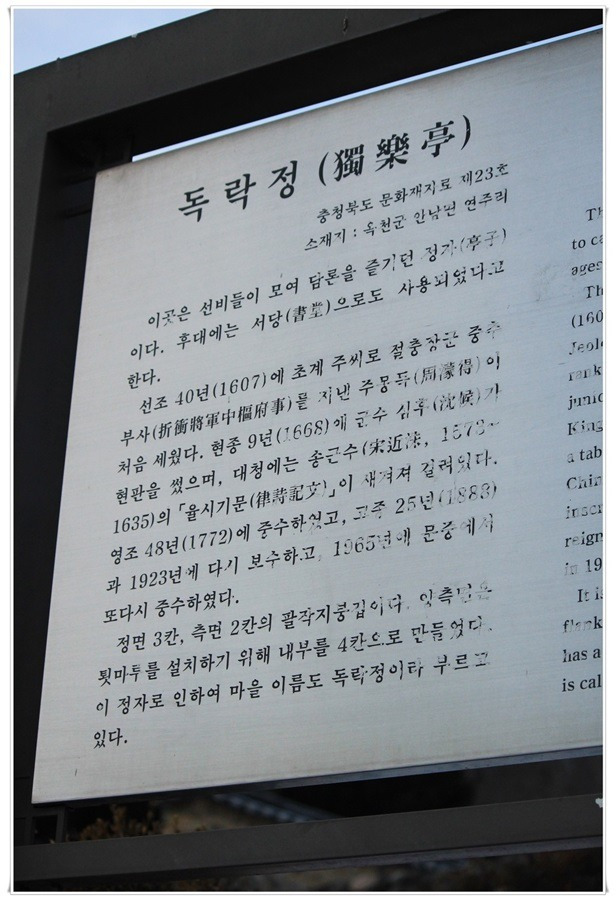 독락정 (獨樂亭)
충청북도 문화재자료 제23호
소재지 : 옥천군 안남면 연주리
이곳은 선비들이 모여 담론을 즐기던 정자(亭子)
이다. 후대에는 서당(書堂)으로도 사용되었다고
한다.
선조 40년(1607)에 초계 주씨로 절충장군 중추
부사(折衝將軍中樞府事)를 지낸 주몽득(周夢得)이
처음 세웠다. 현종 9년(1668)에 군수 심후(沈候)가
현판을 썼으며, 대청에는 송근수(宋近洙,
1635)의 「율시기문(律詩記文)」이 새겨져 걸려있다.
영조 48년(1772)에 중수하였고, 고종 25년(1888)
과 1923년에 다시 보수하고, 1965년에 문중에서
또다시 중수하였다.
정면 3칸, 측면 2칸의 팔작지붕집이다. 양측면은
툇마루를 설치하기 위해 내부를 4칸으로 만들었다.
이 정자로 인하여 마을 이름도 독락정이라 부르고
있다.
Th
to ca
ages
Th
(160
Jeol
rank
junio
King
a tab
Chin
inscr
reign
in 19
It is
flank
has a
is cal